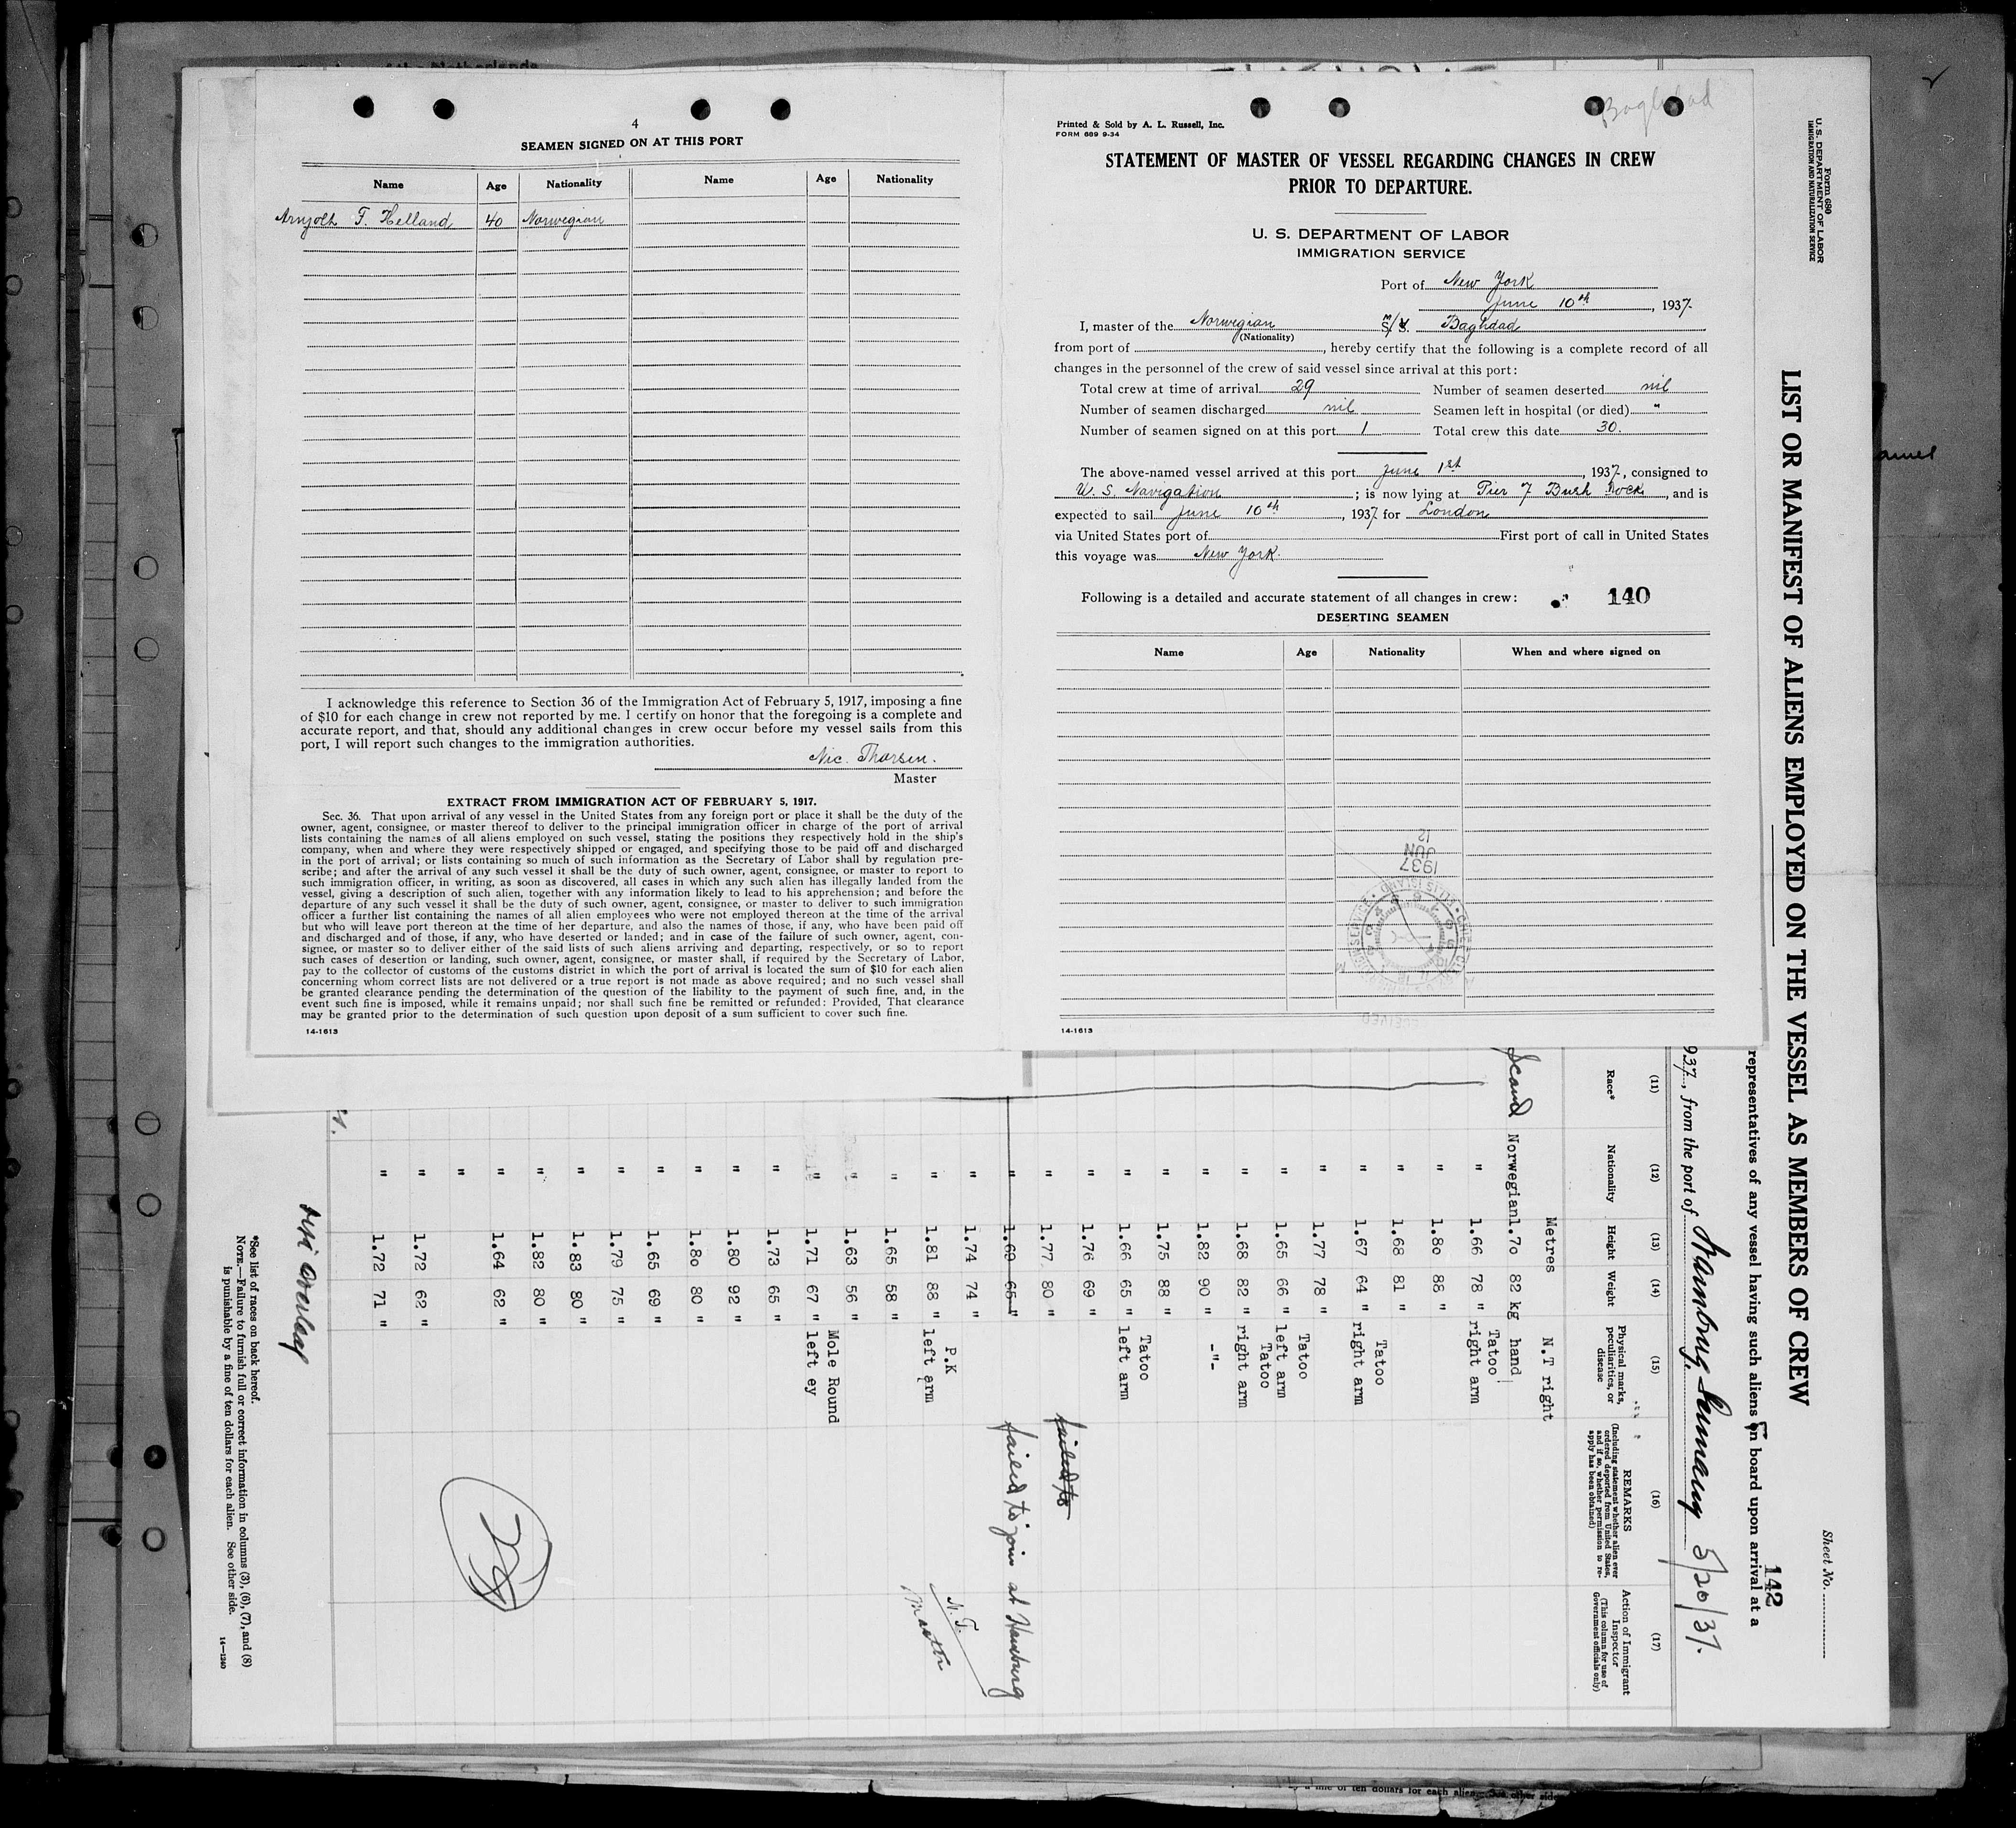 4
SEAMEN SIGNED ON AT THIS PORT
Name Age Nationality Name Age Nationality
F. Helland 40 Norwegian
I acknowledge this reference to Section 36 of the Immigration Act of February 5, 1917, imposing a fine
of $10 for each change in crew not reported by me. I certify on honor that the foregoing is a complete and
accurate report, and that, should any additional changes in crew occur before my vessel sails from this
port, I will report such changes to the immigration authorities.
Nic. Thorsen.
Master
EXTRACT FROM IMMIGRATION ACT OF FEBRUARY 5, 1917.
Sec. 36. That upon arrival of any vessel in the United States from any foreign port or place it shall be the duty of the
owner, agent, consignee, or master thereof to deliver to the principal immigration officer in charge of the port of arrival
lists containing the names of all aliens employed on such vessel, stating the positions they respectively hold in the ship's
company, when and where they were respectively shipped or engaged, and specifying those to be paid off and discharged
in the port of arrival; or lists containing so much of such information as the Secretary of Labor shall by regulation pre-
scribe; and after the arrival of any such vessel it shall be the duty of such owner, agent, consignee, or master to report to
such immigration officer, in writing, as soon as discovered, all cases in which any such alien has illegally landed from the
vessel, giving a description of such alien, together with any information likely to lead to his apprehension; and before the
departure of any such vessel it shall be the duty of such owner, agent, consignee, or master to deliver to such immigration
officer a further list containing the names of all alien employees who were not employed thereon at the time of the arrival
but who will leave port thereon at the time of her departure, and also the names of those, if any, who have been paid off
and discharged and of those, if any, who have deserted or landed; and in case of the failure of such owner, agent, con-
signee, or master so to deliver either of the said lists of such aliens arriving and departing, respectively, or so to report
such cases of desertion or landing, such owner, agent, consignee, or master shall, if required by the Secretary of Labor,
pay to the collector of customs of the customs district in which the port of arrival is located the sum of $10 for each alien
concerning whom correct lists are not delivered or a true report is not made as above required; and no such vessel shall
be granted clearance pending the determination of the question of the liability to the payment of such fine, and, in the
event such fine is imposed, while it remains unpaid; nor shall such fine be remitted or refunded: Provided, That clearance
may be granted prior to the determination of such question upon deposit of a sum sufficient to cover such fine.
14-1613
Baghdad
Printed & Sold by A. L. Russell, Inc.
FORM 689 9-34
STATEMENT OF MASTER OF VESSEL REGARDING CHANGES IN CREW
PRIOR TO DEPARTURE.
U. S. DEPARTMENT OF LABOR
IMMIGRATION SERVICE
Port of New York
June 10th, 1937.
I, master of the Norwegian M/S. Baghdad
(Nationality)
from port of , hereby certify that the following is a complete record of all
changes in the personnel of the crew of said vessel since arrival at this port:
Total crew at time of arrival 29 Number of seamen deserted nil
Number of seamen discharged nil Seamen left in hospital (or died) "
Number of seamen signed on at this port 1 Total crew this date 30.
The above-named vessel arrived at this port June 1st, 1937, consigned to
U. S. Navigation; is now lying at Pier 7 Bush Dock, and is
expected to sail June 10th, 1937 for London
via United States port of First port of call in United States
this voyage was New York.
Following is a detailed and accurate statement of all changes in crew: 140
DESERTING SEAMEN
Name Age Nationality When and where signed on
12
JUN
1937
14-1613
Form 680
U. S. DEPARTMENT OF LABOR
IMMIGRATION AND NATURALIZATION SERVICE
Sheet No.
LIST OR MANIFEST OF ALIENS EMPLOYED ON THE VESSEL AS MEMBERS OF CREW
142
representatives of any vessel having such aliens on board upon arrival at a
937, from the port of Hamburg, Germany 5/20/37.
(11) (12) (13) (14) (15) (16) (17)
Race* Nationality Height Weight Physical marks, peculiarities, or disease REMARKS (Including statement whether alien ever ordered deported from United States, and if so, whether permission to re-apply has been obtained) Action of Immigrant Inspector (This column for use of Government officials only)
Metres N.T right
Scand Norwegian 1.70 82 kg hand
Tatoo
" 1.66 78 " right arm
" 1.80 88 "
" 1.68 81 "
Tatoo
" 1.67 64 " right arm
" 1.77 78 "
Tatoo
" 1.65 66 " left arm
Tatoo
" 1.68 82 " right arm
" 1.82 90 " -"-
" 1.75 88 "
Tatoo
" 1.66 65 " left arm
" 1.76 69 "
" 1.77 80 " failed to
" 1.69 65 " failed to join at Hamburg
" 1.74 74 "
P.K
" 1.81 88 " left arm
N.T.
Master
" 1.65 58 "
" 1.63 56 "
Mole Round
" 1.71 67 " left ey
" 1.73 65 "
" 1.80 92 "
" 1.80 80 "
" 1.65 69 "
" 1.79 75 "
" 1.83 80 "
" 1.82 80 "
" 1.64 62 "
"
" 1.72 62 "
" 1.72 71 "
overleap
*See list of races on back hereof.
NOTE.—Failure to furnish full or correct information in columns (3), (6), (7), and (8)
is punishable by a fine of ten dollars for each alien. See other side.
14-1240